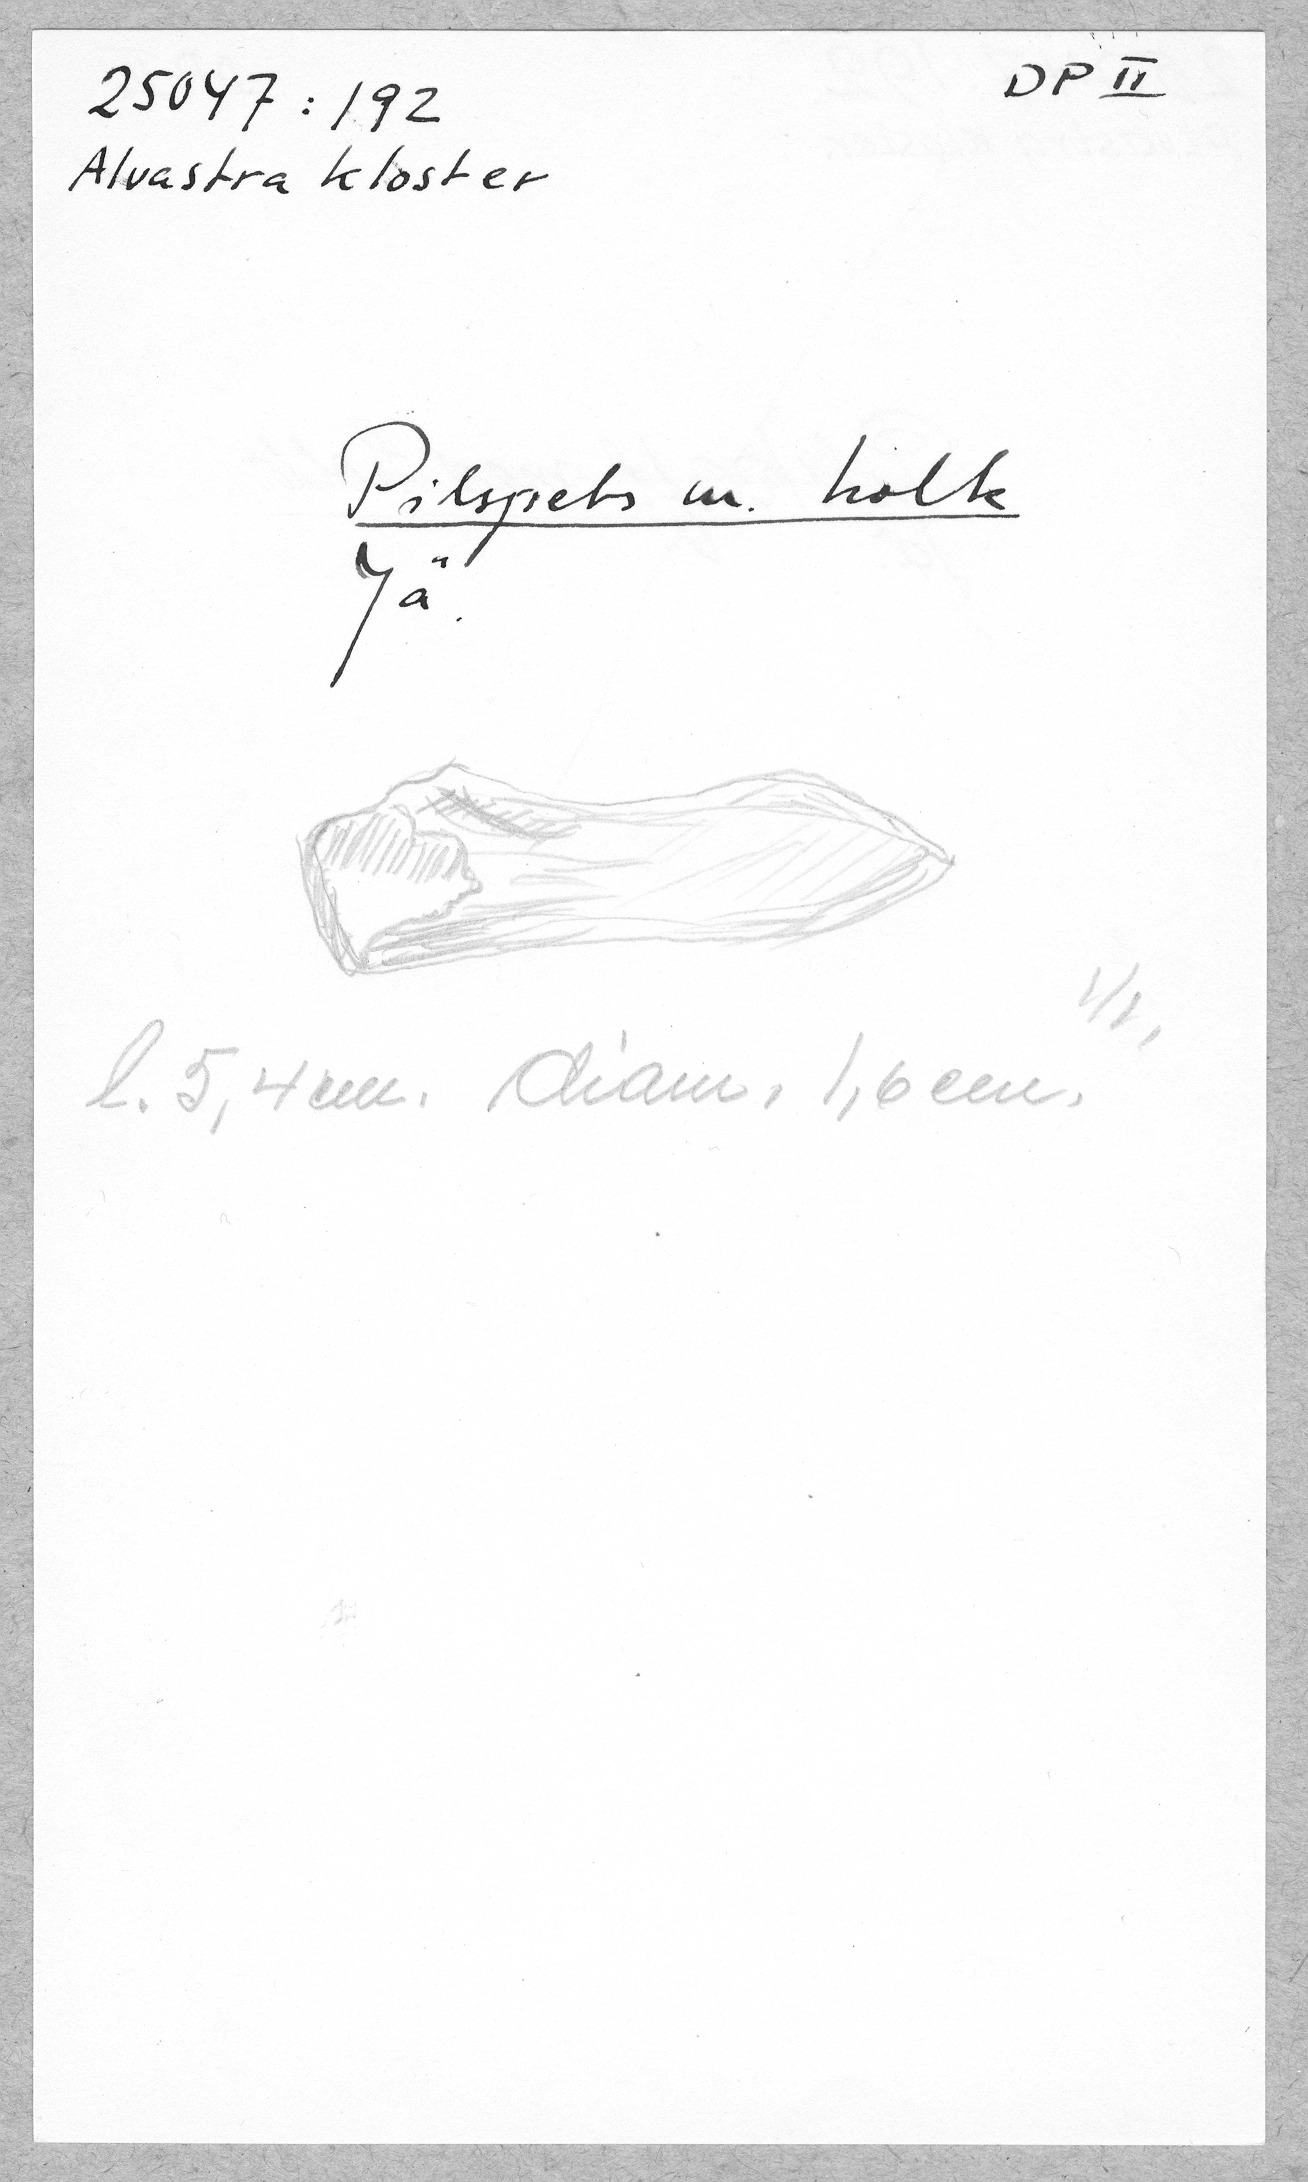 25047:192
DP II
Alvastra kloster
Pilspets m. holk
Jä.
1/1,
l. 5,4 cm. diam. 1,6 cm.